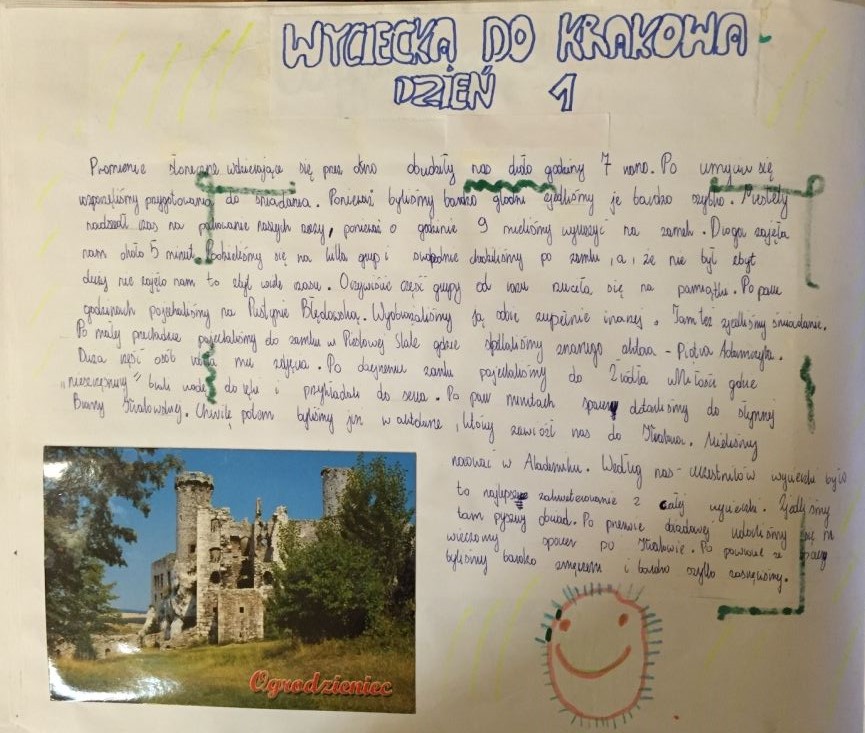 WYCIECKA DO KRAKOWA
DZIEŃ 1
Promienie słoneczne wdzierające się przez okno obudziły nas około godziny 7 rano. Po umyciu się
rozpoczęliśmy przygotowania do śniadania. Ponieważ byliśmy bardzo głodni zjedliśmy je bardzo szybko. Niestety
nadszedł czas na pakowanie naszych rzeczy, ponieważ o godzinie 9 mieliśmy wyruszyć na zamek. Droga zajęła
nam około 5 minut. Podzieliśmy się na kilka grup i swobodnie chodziliśmy po zamku, a, że nie był zbyt
duży nie zajęło nam to zbyt wiele czasu. Oczywiście część grupy od razu rzuciła się na pamiątki. Po paru
godzinach pojechaliśmy na Pustynię Błędowską. Wyobrażaliśmy ją sobie zupełnie inaczej. Tam też zjedliśmy śniadanie.
Po małej przekąsce pojechaliśmy do zamku w Pieskowej Skale gdzie spotkaliśmy znanego aktora - Piotra Adamczyka.
Duża część osób robiła mu zdjęcia. Po zwiedzeniu zamku pojechaliśmy do Źródła Miłości gdzie
"nieszczęśnicy" brali wodę do ręki i przykładali do serca. Po paru minutach spaceru dotarliśmy do słynnej
Bramy Krakowskiej. Chwilę potem byliśmy już w autokarze, który zawiózł nas do Krakowa. Mieliśmy
nocować w Akademiku. Według nas - uczestników wycieczki było
to najlepsze zakwaterowanie z całej wycieczki. Zjedliśmy
tam pyszny obiad. Po przerwie obiadowej udaliśmy się na
wieczorny spacer po Krakowie. Po powrocie ze spaceru
byliśmy bardzo zmęczeni i bardzo szybko zasnęliśmy.
Ogrodzieniec